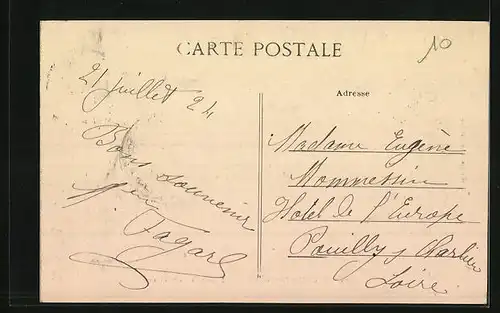 CARTE POSTALE
10
21 juillet 24
Bons souvenirs
Fagard
Adresse
Madame Eugène
Mommessin
Hotel de l'Europe
Pouilly s/ Charlieu
Loire